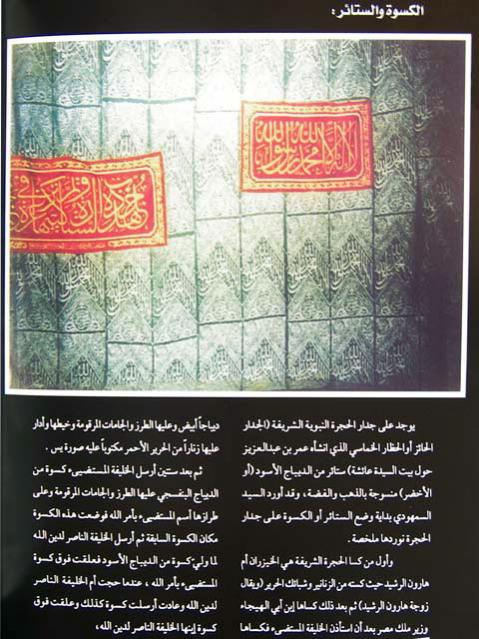 الكسوة والستائر :
لا إله إلا الله محمد رسول الله
يوجد على جدار الحجرة النبوية الشريفة (الجدار
الحائز أوالحظار الخماسي الذي انشأه عمر بن عبدالعزيز
حول بيت السيدة عائشة) ستائر من الديباج الأسود (أو
الأخضر) منسوجة بالذهب والفضة، وقد أورد السيد
السمهودي بداية وضع الستائر أو الكسوة على جدار
الحجرة نوردها ملخصة.
وأول من كسا الحجرة الشريفة هي الخيزران أم
هارون الرشيد حيث كسته من الزنانير وشبائك الحرير (ويقال
زوجة هارون الرشيد) ثم بعد ذلك كساها إبن أبي الهيجاء
وزير ملك مصر بعد أن استأذن الخليفة المستضيء فكساها
ديباجاً أبيض وعليها الطرز والجامات المرقومة وخيطها وأدار
عليها زناراً من الحرير الأحمر مكتوباً عليه صورة يس .
ثم بعد سنتين أرسل الخليفة المستضيء كسوة من
الديباج البنفسجي عليها الطرز والجامات المرقومة وعلى
طرازها أسم المستضيء بأمر الله فوضعت هذه الكسوة
مكان الكسوة السابقة ثم أرسل الخليفة الناصر لدين الله
لما ولي كسوة من الديباج الأسود فعلقت فوق كسوة
المستضيء بأمر الله ، عندما حجت أم الخليفة الناصر
لدين الله وعادت أرسلت كسوة كذلك وعلقت فوق
كسوة إبنها الخليفة الناصر لدين الله،